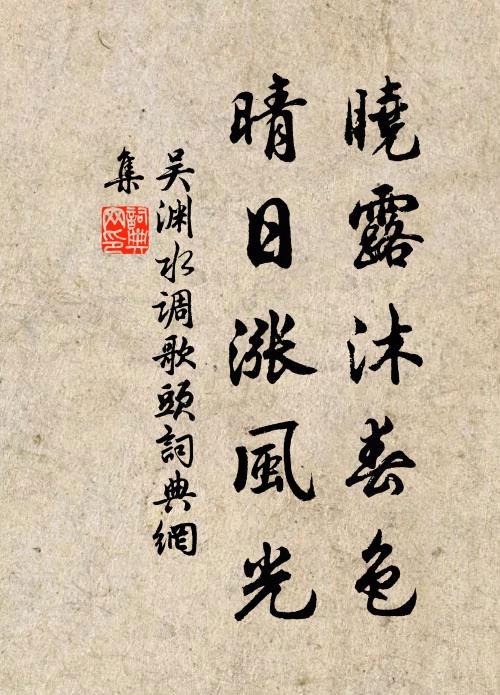 曉露沐春色
晴日漲風光
吴渊水调歌頭詞典網
集
詞典網印